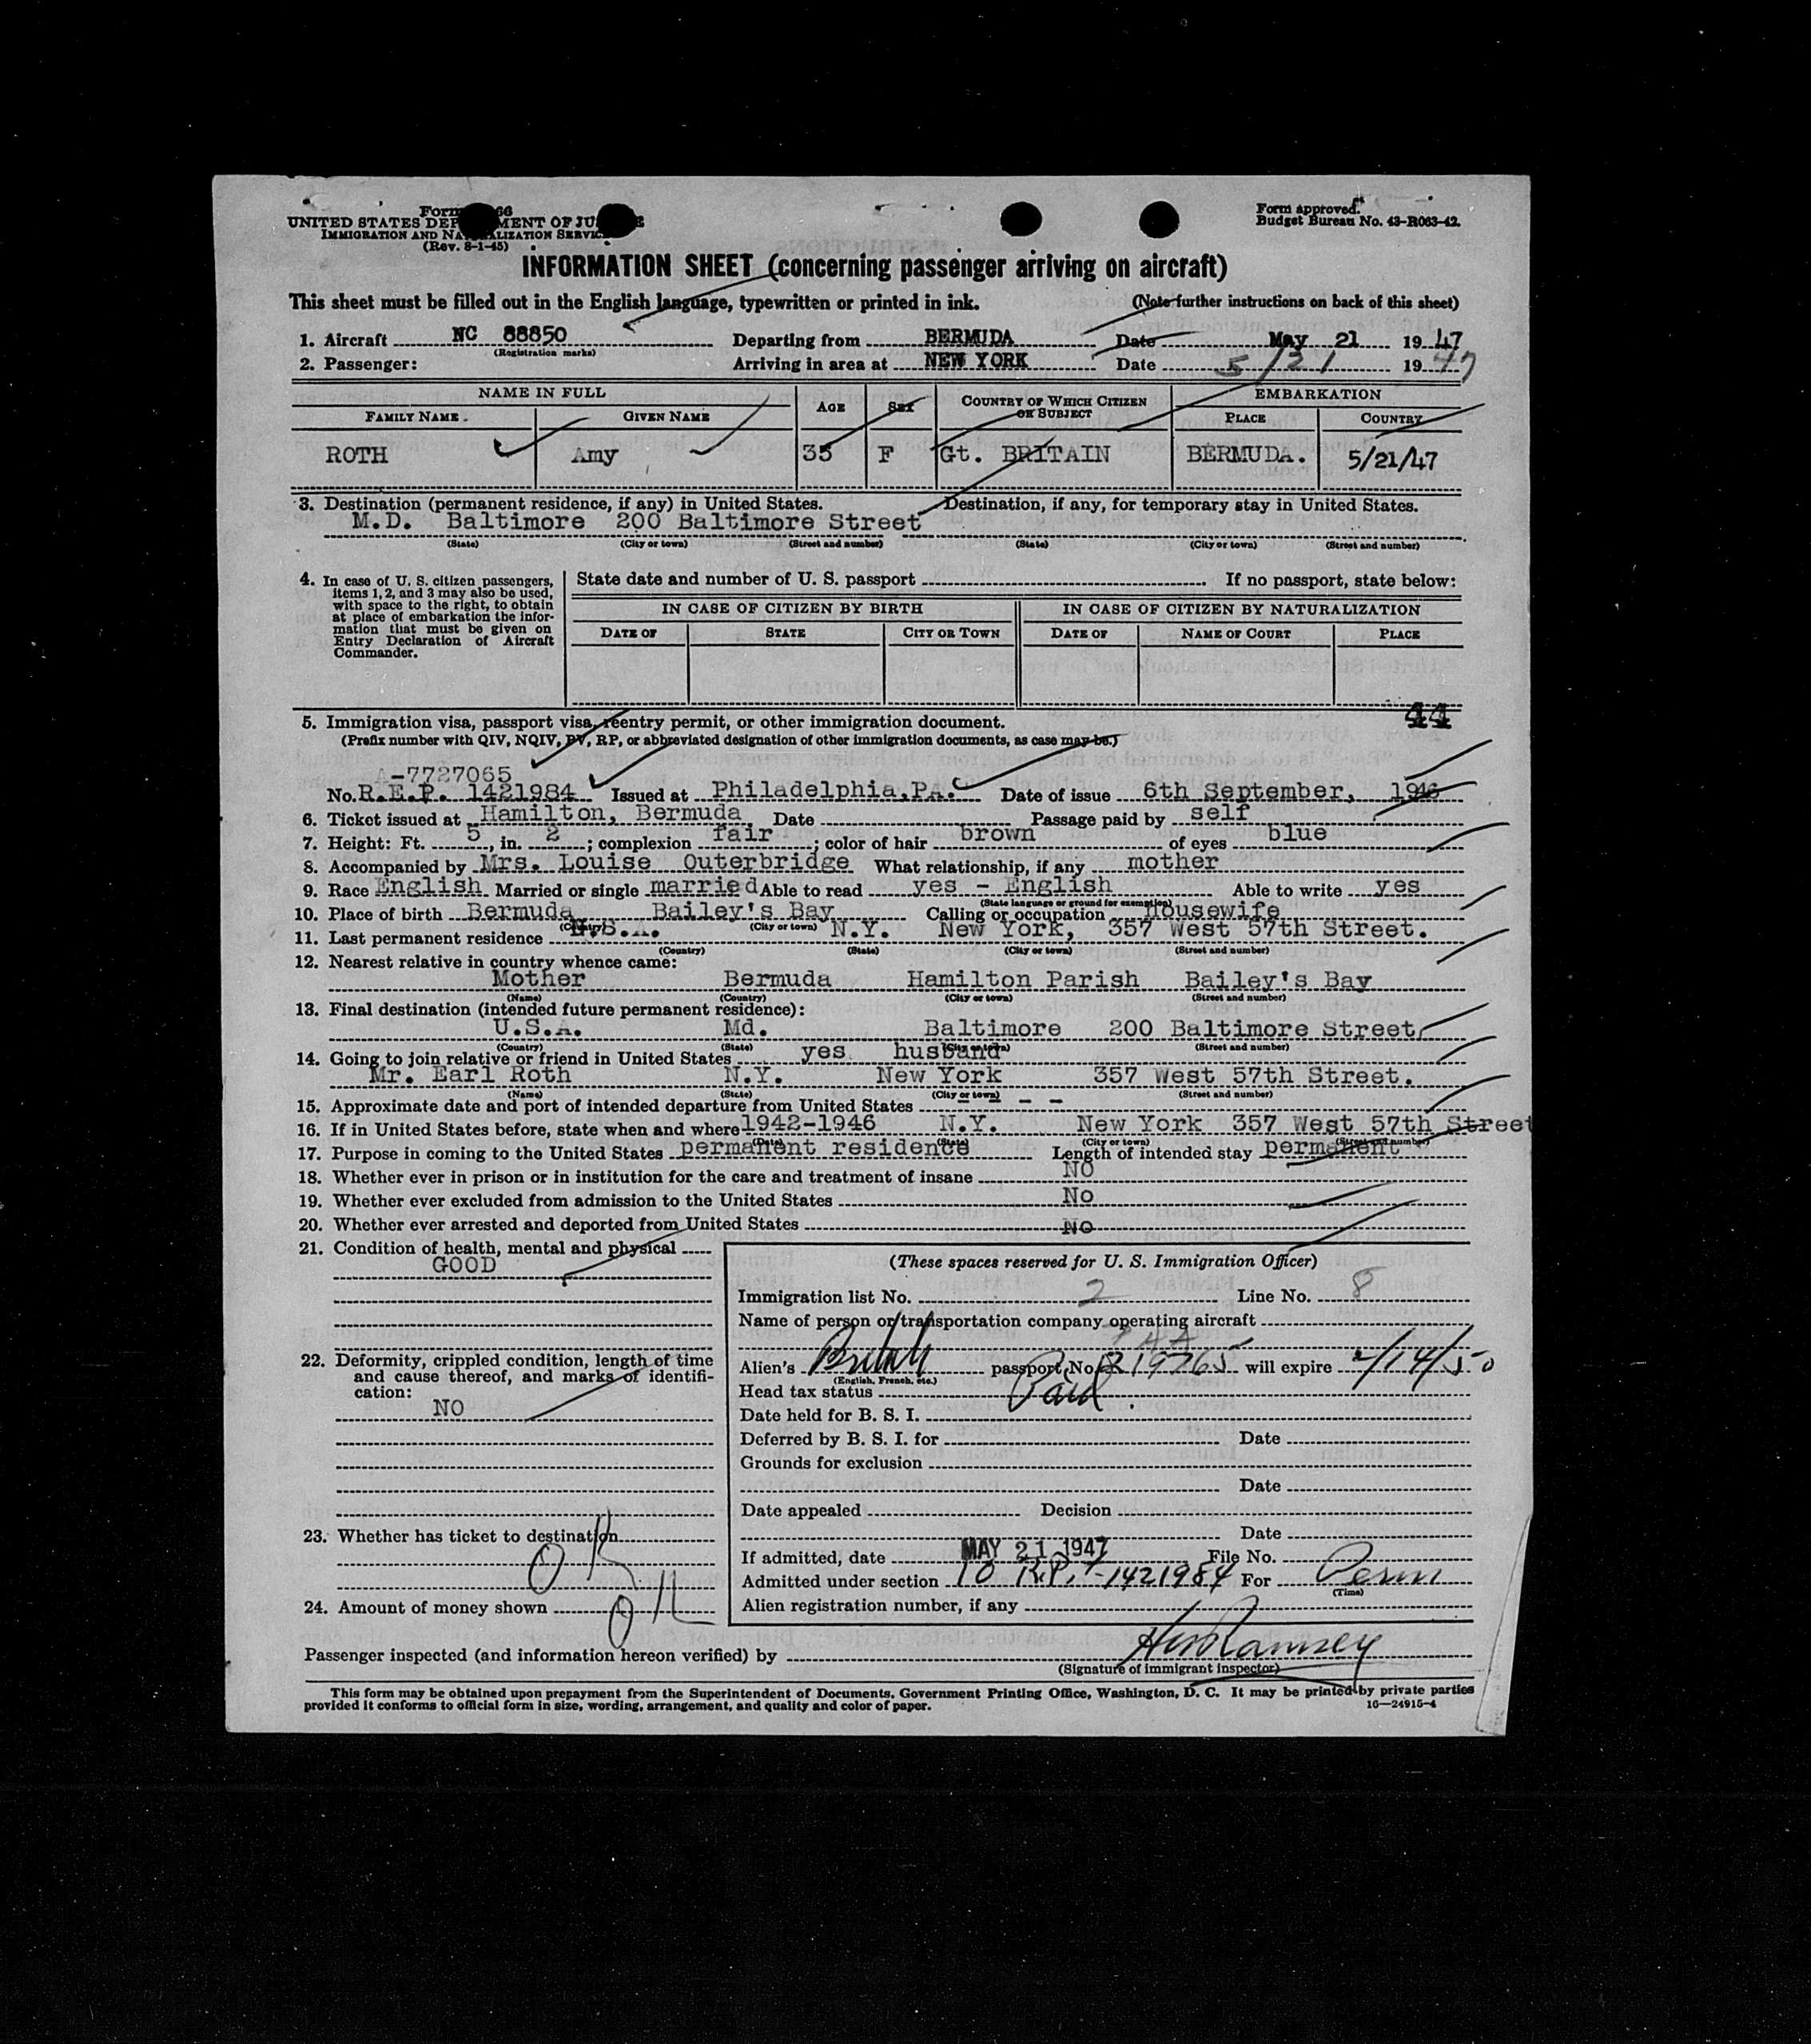 Form 66
UNITED STATES DEPARTMENT OF JUSTICE
IMMIGRATION AND NATURALIZATION SERVICE
(Rev. 8-1-45)
Form approved.
Budget Bureau No. 43-R063-42.
INFORMATION SHEET (concerning passenger arriving on aircraft)
This sheet must be filled out in the English language, typewritten or printed in ink. (Note further instructions on back of this sheet)
1. Aircraft NC 88850 Departing from BERMUDA Date May 21 1947
(Registration marks)
2. Passenger: Arriving in area at NEW YORK Date 5/21 1947
NAME IN FULL AGE SEX COUNTRY OF WHICH CITIZEN OR SUBJECT EMBARKATION
FAMILY NAME GIVEN NAME PLACE COUNTRY
ROTH Amy 35 F Gt. BRITAIN BERMUDA. 5/21/47
3. Destination (permanent residence, if any) in United States. Destination, if any, for temporary stay in United States.
M.D. Baltimore 200 Baltimore Street
(State) (City or town) (Street and number) (State) (City or town) (Street and number)
4. In case of U. S. citizen passengers, items 1, 2, and 3 may also be used, with space to the right, to obtain at place of embarkation the information that must be given on Entry Declaration of Aircraft Commander.
State date and number of U. S. passport If no passport, state below:
IN CASE OF CITIZEN BY BIRTH IN CASE OF CITIZEN BY NATURALIZATION
DATE OF STATE CITY OR TOWN DATE OF NAME OF COURT PLACE
44
5. Immigration visa, passport visa, reentry permit, or other immigration document.
(Prefix number with QIV, NQIV, PV, RP, or abbreviated designation of other immigration documents, as case may be.)
A-7727065
No. R.E.P. 1421984 Issued at Philadelphia, PA. Date of issue 6th September, 1946
6. Ticket issued at Hamilton, Bermuda Date Passage paid by self
7. Height: Ft. 5, in. 2; complexion fair; color of hair brown of eyes blue
8. Accompanied by Mrs. Louise Outerbridge What relationship, if any mother
9. Race English Married or single married Able to read yes - English Able to write yes
(State language or ground for exemption)
10. Place of birth Bermuda Bailey's Bay Calling or occupation Housewife
(Country) (City or town)
11. Last permanent residence U.S.A. N.Y. New York, 357 West 57th Street.
(Country) (State) (City or town) (Street and number)
12. Nearest relative in country whence came:
Mother Bermuda Hamilton Parish Bailey's Bay
(Name) (Country) (City or town) (Street and number)
13. Final destination (intended future permanent residence):
U.S.A. Md. Baltimore 200 Baltimore Street,
(Country) (State) (City or town) (Street and number)
14. Going to join relative or friend in United States yes husband
Mr. Earl Roth N.Y. New York 357 West 57th Street.
(Name) (State) (City or town) (Street and number)
15. Approximate date and port of intended departure from United States - - - -
16. If in United States before, state when and where 1942-1946 N.Y. New York 357 West 57th Street
(Date) (State) (City or town) (Street and number)
17. Purpose in coming to the United States permanent residence Length of intended stay permanent
18. Whether ever in prison or in institution for the care and treatment of insane NO
19. Whether ever excluded from admission to the United States No
20. Whether ever arrested and deported from United States NO
21. Condition of health, mental and physical
GOOD
22. Deformity, crippled condition, length of time and cause thereof, and marks of identification:
NO
23. Whether has ticket to destination
OK
24. Amount of money shown OK
(These spaces reserved for U. S. Immigration Officer)
Immigration list No. 2 Line No. 8
Name of person or transportation company operating aircraft
PAA
Alien's British passport No. 219765 will expire 2/14/50
(English, French, etc.)
Head tax status Paid.
Date held for B. S. I.
Deferred by B. S. I. for Date
Grounds for exclusion
Date
Date appealed Decision
Date
If admitted, date MAY 21 1947 File No.
Admitted under section 10 R.P. #1421984 For Perm
(Time)
Alien registration number, if any
Passenger inspected (and information hereon verified) by Ramsey
(Signature of immigrant inspector)
This form may be obtained upon prepayment from the Superintendent of Documents, Government Printing Office, Washington, D. C. It may be printed by private parties
provided it conforms to official form in size, wording, arrangement, and quality and color of paper. 16—24915-4